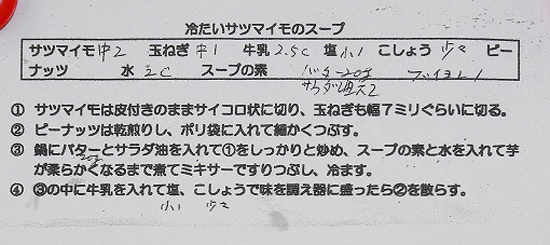 冷たいサツマイモのスープ
サツマイモ中2 玉ねぎ 中1 牛乳 2.5c 塩 小1 こしょう 少々 ピー
ナッツ 水 2c スープの素 バター20g ブイヨン1
サラダ油大2
① サツマイモは皮付きのままサイコロ状に切り、玉ねぎも幅7ミリぐらいに切る。
② ピーナッツは乾煎りし、ポリ袋に入れて細かくつぶす。
③ 鍋にバターとサラダ油を入れて①をしっかりと炒め、スープの素と水を入れて芋
20g
が柔らかくなるまで煮てミキサーですりつぶし、冷ます。
④ ③の中に牛乳を入れて塩、こしょうで味を調え器に盛ったら②を散らす。
小1 少々